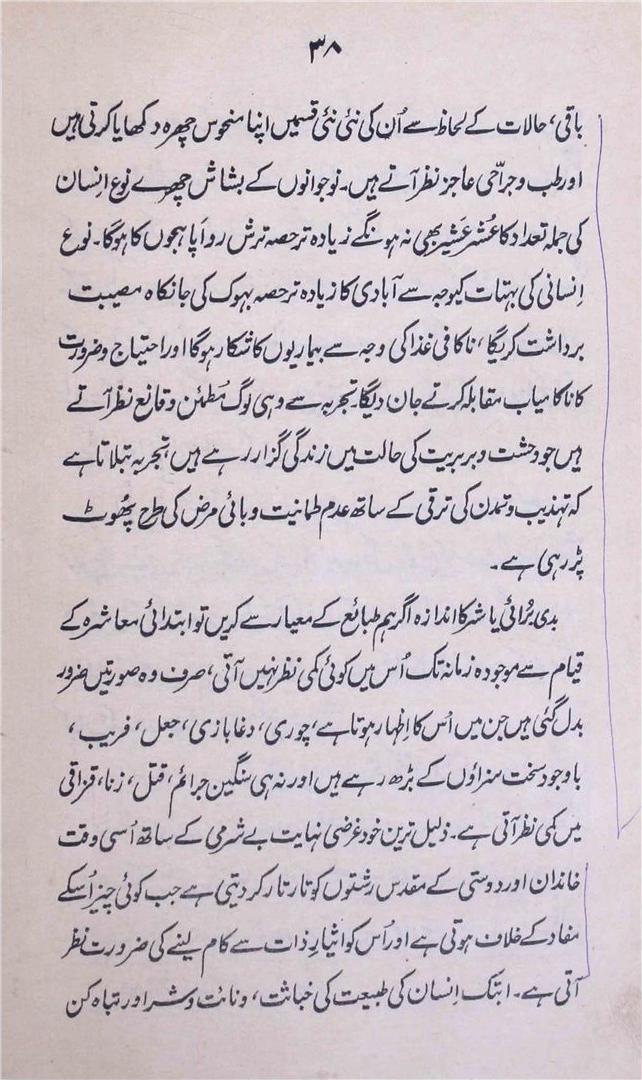 ۳۸
باقی، حالات کے لحاظ سے اُن کی نئی نئی قسمیں اپنا منحوس چہرہ دکھایا کرتی ہیں
اور طب و جراّحی عاجز نظر آتے ہیں۔ نوجوانوں کے بشاش چہرے نوع اِنسان
کی جملہ تعداد کا عُشر عَشیر بھی نہ ہونگے زیادہ ترحصہ ترش رو اَپاہجوں کا ہوگا۔ نوع
اِنسانی کی بہتات کیوجہ سے آبادی کا زیادہ ترحصہ بہوک کی جانکاہ مصیبت
برداشت کریگا، ناکافی غذا کی وجہ سے بیماریوں کا شکار ہوگا اور احتیاج و ضرورت
کا ناکامیاب مقابلہ کرتے جان دیگا۔ تجربہ سے وہی لوگ مَطمئن و قانع نظر آتے
ہیں جو وحشت و بربریت کی حالت میں زندگی گزار رہے ہیں، تجربہ بتلاتا ہے
کہ تہذیب و تمدن کی ترقی کے ساتھ عدم طمانیت وبائی مرض کی طرح پھُوٹ
پڑ رہی ہے۔
بدی بُرائی یا شر کا اندازہ اگر ہم طبائع کے معیار سے کریں تو ابتدائی معاشرہ کے
قیام سے موجودہ زمانہ تک اُس میں کوئی کمی نظر نہیں آتی، صرف وہ صورتیں ضرور
بدل گئی ہیں جن میں اُس کا اِظہار ہوتا ہے، چوری، دغابازی، جعل، فریب،
باوجود سخت سزاؤں کے بڑھ رہے ہیں اور نہ ہی سنگین جرائم، قتل، زنا، قزاقی
میں کمی نظر آتی ہے۔ ذلیل ترین خودغرضی نہایت بے شرمی کے ساتھ اُسی وقت
خاندان اور دوستی کے مقدس رشتوں کو تارتار کر دیتی ہے جب کوئی چیز اُسکے
مفاد کے خلاف ہوتی ہے اور اُس کو ایثارِ ذات سے کام لینے کی ضرورت نظر
آتی ہے۔ ابتک اِنسان کی طبیعت کی خباثت، ونائت و شر اور تباہ کن